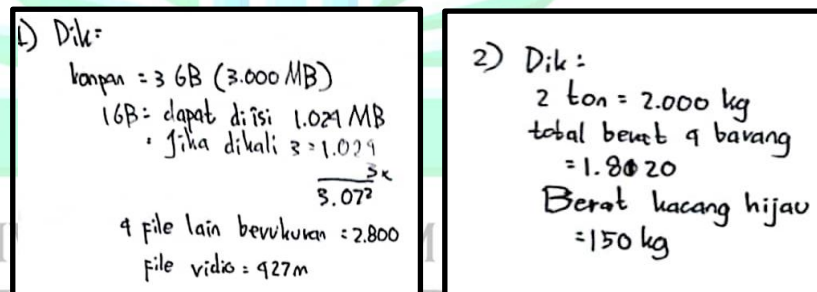 1) Dik:
konpan = 3 GB (3.000 MB)
1GB: dapat diisi 1.024 MB
• Jika dikali 3 = 1.024
3x
3.072
4 file lain berukuran : 2.800
File vidio = 427m
2) Dik :
2 ton = 2.000 kg
total berat 4 barang
= 1.8020
Berat kacang hijau
= 150 kg